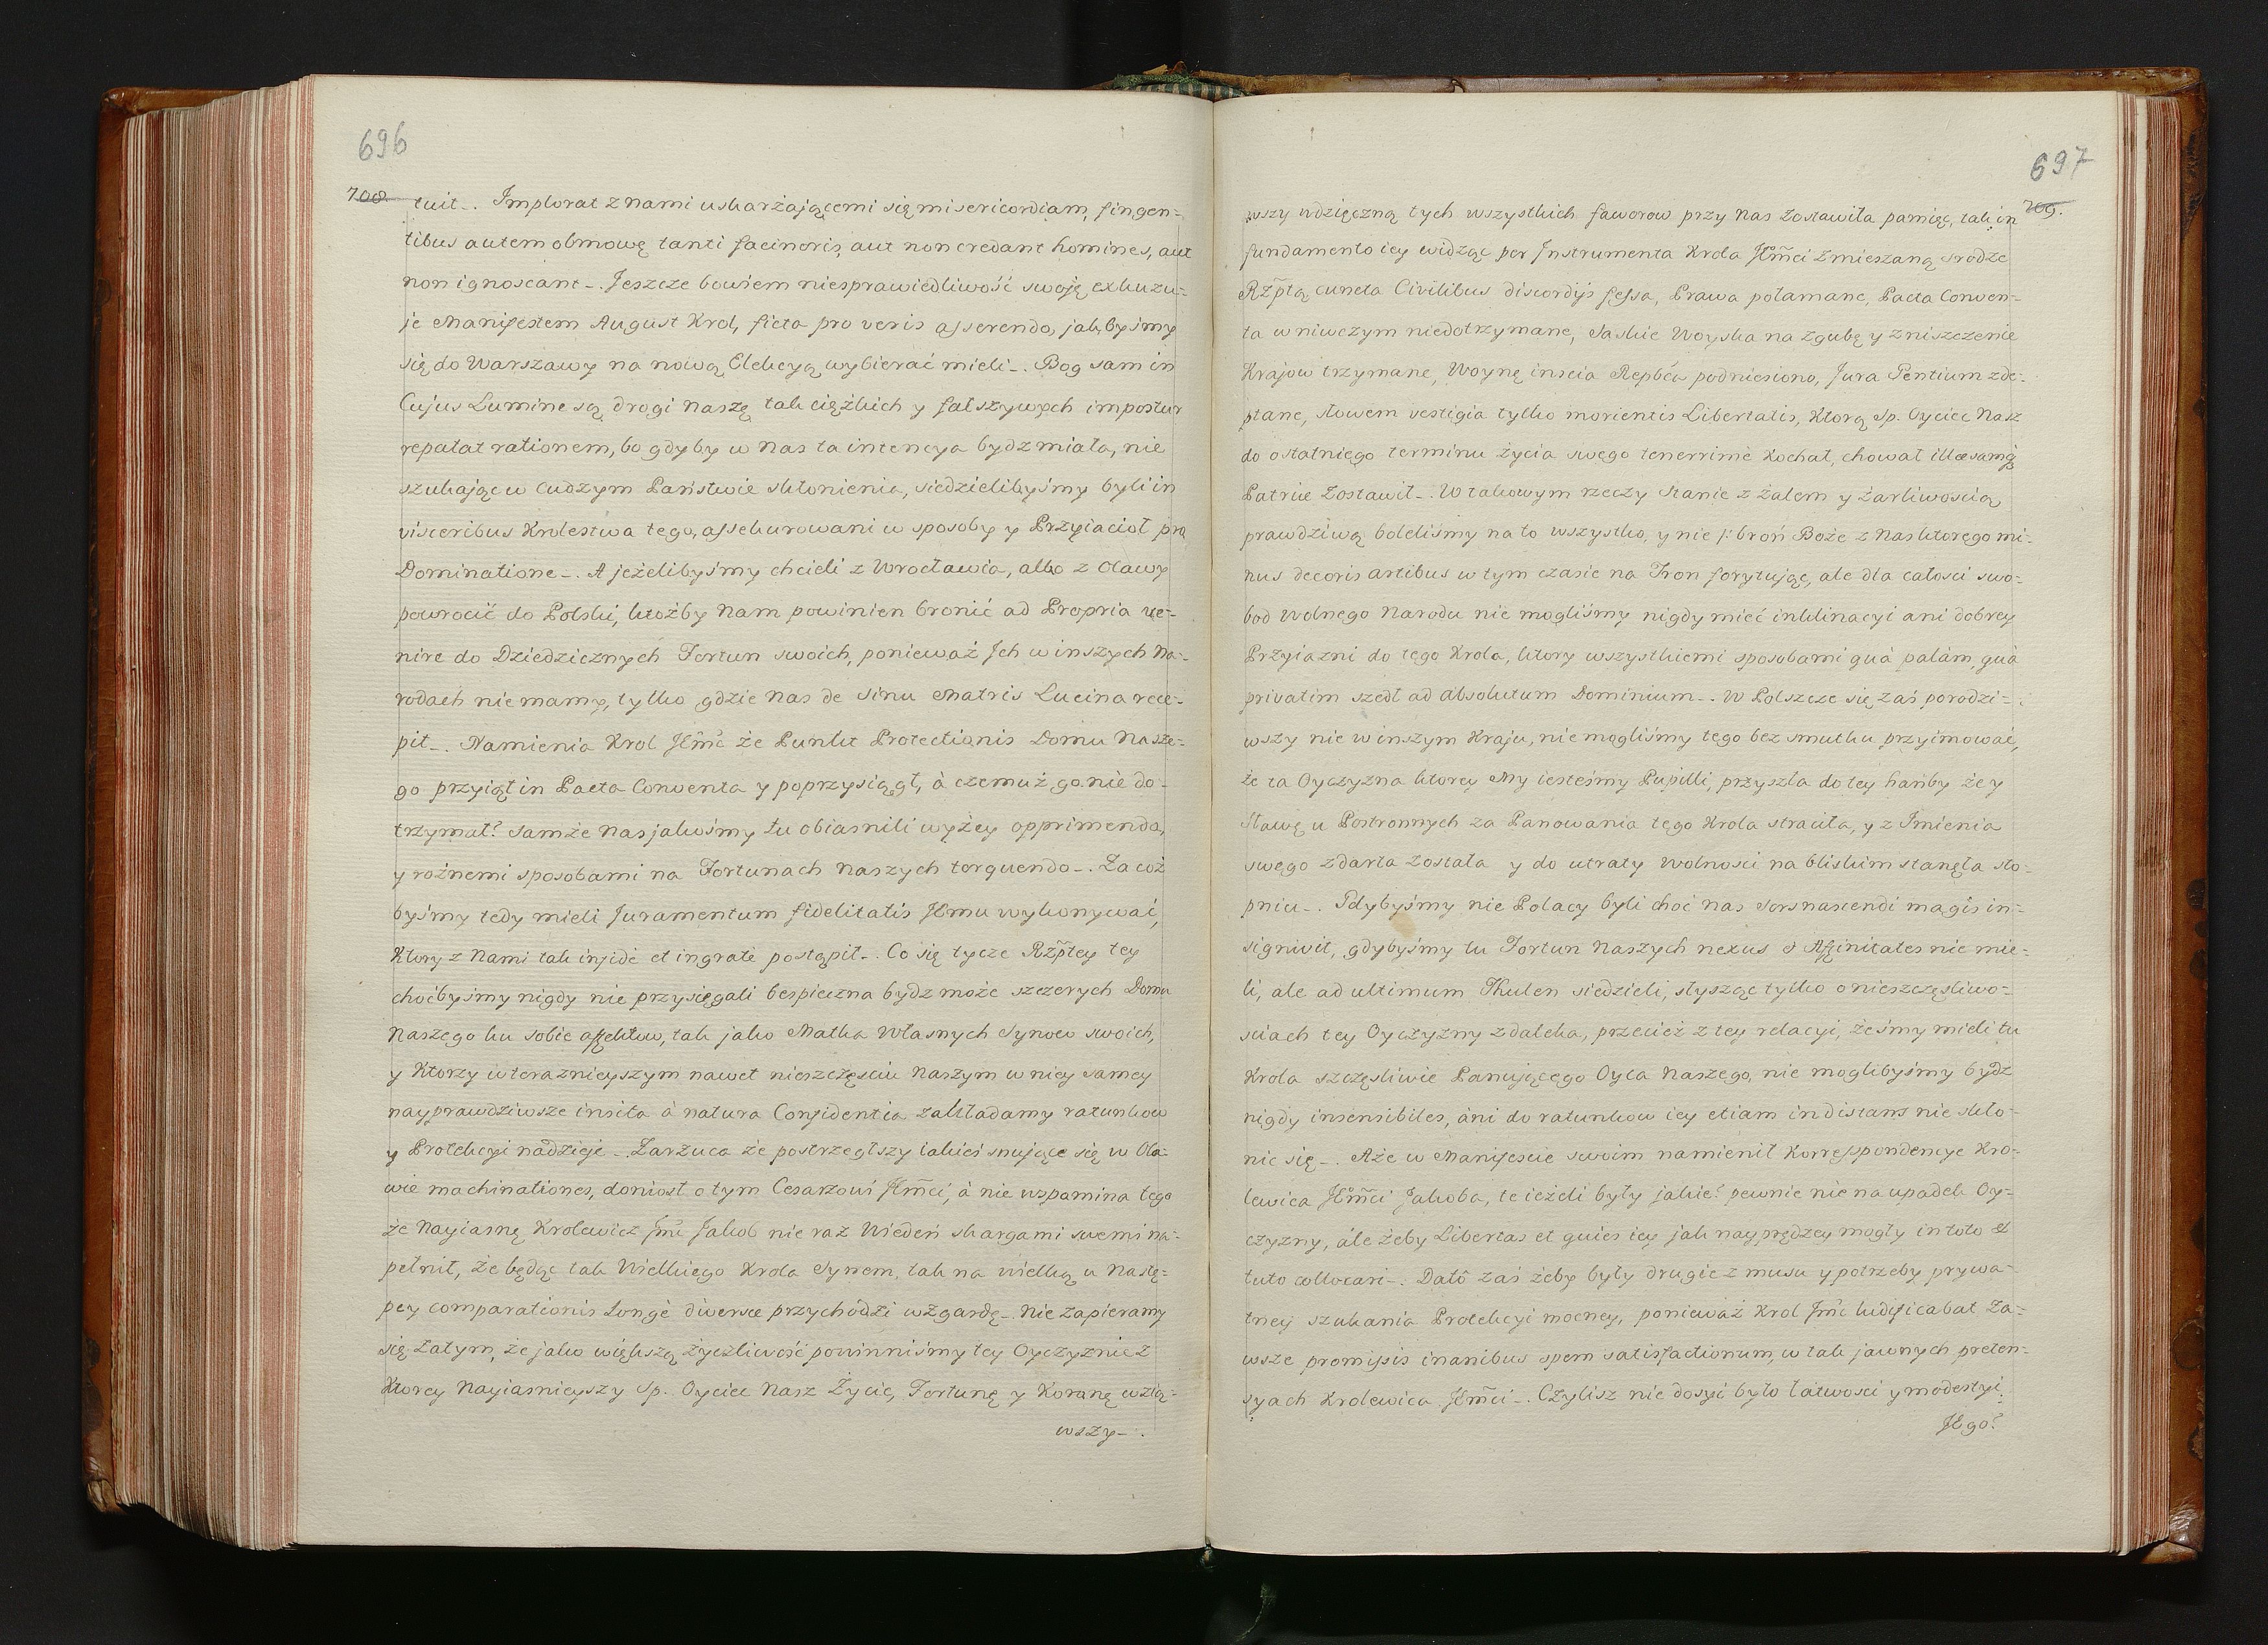 696
708.
tuit_. Implorat z nami uskarżającemi się misericordiam, fingen-
tibus autem obmowę tanti facinoris, aut non credant homines, aut
non ignoscant_. Jeszcze bowiem niesprawiedliwość swoję exkuzu-
je Manifestem August Krol, ficta pro veris asserendo, jakbyśmy
się do Warszawy na nową Elekcyą wybierać mieli_. Bog sam in
Cujus Lumine są drogi naszę tak ciężkich y fałszywych impostur
repatat rationem, bo gdyby w nas ta intencya bydz miała, nie
szukając w cudzym Państwie skłonienia, siedzielibyśmy byli in
visceribus Krolestwa tego, assekurowani w sposoby y Przyiacioł pro
Dominatione_. A jeżelibyśmy chcieli z Wrocławia, albo z Oławy
powrocić do Polski, ktożby Nam powinien bronić ad Propria ve-
nire do Dziedzicznych Fortun swoich, ponieważ Jch w inszych Na-
rodach nie mamy, tylko gdzie Nas de sinu Matris Lucina rece-
pit_. Namienia Krol JEmć że Punkt Protectionis Domu Nasze-
go przyiął in Pacta Conventa y poprzysiągł, à czemuż go nie do-
trzymał? Samże Nas jakośmy tu obiasnili wyżey opprimendo,
y rożnemi sposobami na Fortunach Naszych torquendo_. Za coż
byśmy tedy mieli Juramentum fidelitatis JEmu wykonywać,
Ktory z Nami tak infidè et ingratè postąpił_. Co się tycze Rzptey tey
choćbyśmy nigdy nie przysięgali bespieczna bydz może szczerych Domu
Naszego ku sobie affektow, tak jako Matka Własnych Synow swoich,
y Ktorzy w teraznieyszym nawet nieszczęsciu Naszym w niey samey
nayprawdziwsze insita à natura Confidentia zakładamy ratunkow
y Protekcyi nadzieje_. Zarzuca że postrzegłszy iakieś snujące się w Oła-
wie machinationes, doniosł o tym Cesarzowi JEmći, à nie wspamina tego
że Nayiasnę Krolewicz Jmć Jakob nie raz Wiedeń skargami swemi na-
pełnił, że będąc tak Wielkiego Krola Synem, tak na wielką u Nastę-
pcy comparationis longè diversæ przychodzi wzgardę_. Nie zapieramy
się zatym, że jako większą życzliwość powinniśmy tey Oyczyznie z
Ktorey Nayiasnieyszy Sp. Oyciec Nasz Życie, Fortunę y Koronę wzią-
wszy_.
697
709.
wszy wdzięczną tych wszystkich faworow przy Nas zostawiła pamięć, tak in
fundamento iey widząc per Instrumenta Krola JEmći zmieszaną srodze
Rzptą cuncta Civilibus discordijs fessa, Prawa połamane, Pacta Conven-
ta w niwczym niedotrzymane, Saskie Woyska na zgubę y zniszczenie
Krajow trzymane, Woynę inscia Repbca podniesiono, Jura Gentium zde-
ptane, słowem vestigia tylko morientis Libertatis, Ktorą Sp. Oyciec Nasz
do ostatniego terminu życia swego tenerrimè kochał, chował illæsamq
Patriæ zostawił_. W takowym rzeczy stanie z żalem y żarliwoscią
prawdziwą boleliśmy na to wszystko, y nie /: broń Boże z Nas ktorego mi-
nus decoris artibus w tym czasie na Tron forytując, ale dla całosci swo-
bod Wolnego Narodu nie mogliśmy nigdy mieć inklinacyi ani dobrey
Przyiazni do tego Krola, ktory wszystkiemi sposobami quà palàm, quà
privatim szedł ad absolutum Dominium_. W Polszcze się zaś porodzi-
wszy nie w inszym Kraju, nie mogliśmy tego bez smutku przyimować,
że ta Oyczyzna ktorey My iesteśmy Pupilli, przyszła do tey hańby że y
Sławę u Postronnych za Panowania tego Krola straciła, y z Jmienia
swego zdarta została y do utraty Wolnosci na bliskim stanęła sto-
pniu_. Gdybyśmy nie Polacy byli choć nas sors nascendi magis in-
signivit, gdybyśmy tu Fortun Naszych nexus & Affinitates nie mie-
li, ale ad ultimum Thulen siedzieli, słysząc tylko o nieszczęsliwo-
sciach tey Oyczyzny zdaleka, przecież z tey relacyi, żeśmy mieli tu
Krola szczęsliwie Panującego Oyca Naszego, nie moglibyśmy bydź
nigdy insensibiles, áni do ratunkow iey etiam in distans nie skło-
nić się_. Aże w Manifescie swoim namienił Korrespondencye Kro-
lewica JEmći Jakoba, te ieżeli były jakie? pewnie nie na upadek Oy-
czyzny, ále żeby Libertas et quies iey jak nayprędzey mogły in toto et
tuto collocari_. Datô zaś żeby były drugie z musu y potrzeby prywa-
tney szukania Protekcyi mocney, ponieważ Krol Jmć ludificabat Za-
wsze promissis inanibus spem satisfactionum, w tak jawnych preten-
syach Krolewica JEmći_. Czylisz nie dosyć było łatwosci y modestyi
JEgo?